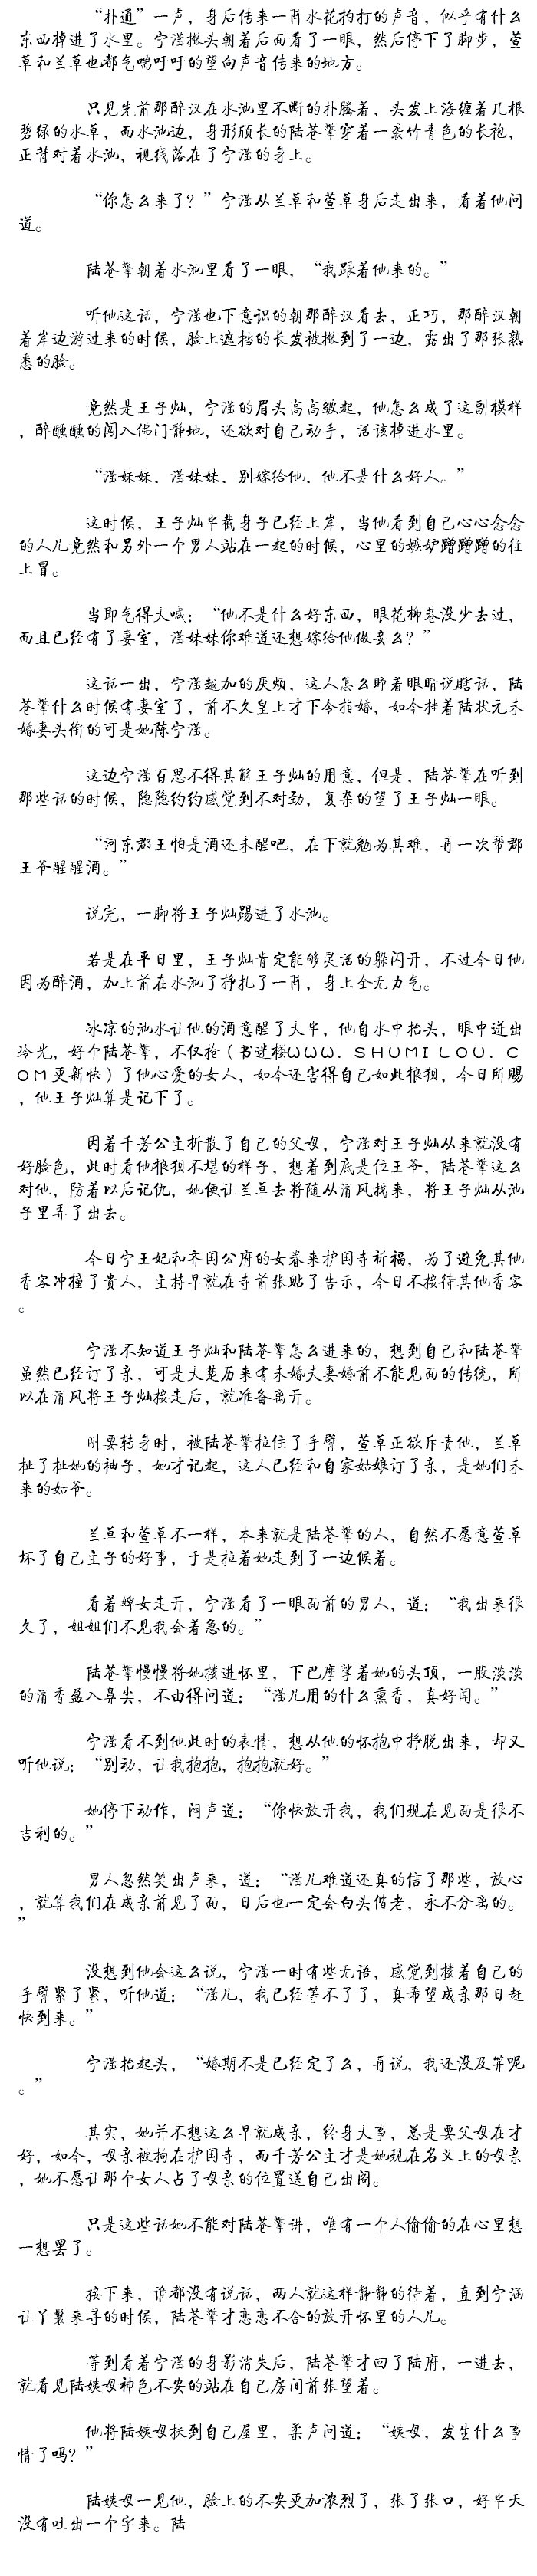 “扑通”一声，身后传来一阵水花拍打的声音，似乎有什么
东西掉进了水里。宁滢撇头朝着后面看了一眼，然后停下了脚步，萱
草和兰草也都气喘吁吁的望向声音传来的地方。
只见先前那醉汉在水池里不断的扑腾着，头发上海缠着几根
碧绿的水草，而水池边，身形颀长的陆苍擎穿着一袭竹青色的长袍，
正背对着水池，视线落在了宁滢的身上。
“你怎么来了？”宁滢从兰草和萱草身后走出来，看着他问
道。
陆苍擎朝着水池里看了一眼，“我跟着他来的。”
听他这话，宁滢也下意识的朝那醉汉看去，正巧，那醉汉朝
着岸边游过来的时候，脸上遮挡的长发被撇到了一边，露出了那张熟
悉的脸。
竟然是王子灿，宁滢的眉头高高皱起，他怎么成了这副模样
，醉醺醺的闯入佛门静地，还欲对自己动手，活该掉进水里。
“滢妹妹．滢妹妹．别嫁给他．他不是什么好人．”
这时候，王子灿半截身子已经上岸，当他看到自己心心念念
的人儿竟然和另外一个男人站在一起的时候，心里的嫉妒蹭蹭蹭的往
上冒。
当即气得大喊：“他不是什么好东西，眼花柳巷没少去过，
而且已经有了妻室，滢妹妹你难道还想嫁给他做妾么？”
这话一出，宁滢越加的厌烦，这人怎么睁着眼睛说瞎话，陆
苍擎什么时候有妻室了，前不久皇上才下令指婚，如今挂着陆状元未
婚妻头衔的可是她陈宁滢。
这边宁滢百思不得其解王子灿的用意，但是，陆苍擎在听到
那些话的时候，隐隐约约感觉到不对劲，复杂的望了王子灿一眼。
“河东郡王怕是酒还未醒吧，在下就勉为其难，再一次帮郡
王爷醒醒酒。”
说完，一脚将王子灿踢进了水池。
若是在平日里，王子灿肯定能够灵活的躲闪开，不过今日他
因为醉酒，加上前在水池了挣扎了一阵，身上全无力气。
冰凉的池水让他的酒意醒了大半，他自水中抬头，眼中迸出
冷光，好个陆苍擎，不仅抢（书迷楼ＷＷＷ．ＳＨＵＭＩＬＯＵ．Ｃ
ＯＭ更新快）了他心爱的女人，如今还害得自己如此狼狈，今日所赐
，他王子灿算是记下了。
因着千芳公主拆散了自己的父母，宁滢对王子灿从来就没有
好脸色，此时看他狼狈不堪的样子，想着到底是位王爷，陆苍擎这么
对他，防着以后记仇，她便让兰草去将随从清风找来，将王子灿从池
子里弄了出去。
今日宁王妃和齐国公府的女眷来护国寺祈福，为了避免其他
香客冲撞了贵人，主持早就在寺前张贴了告示，今日不接待其他香客
。
宁滢不知道王子灿和陆苍擎怎么进来的，想到自己和陆苍擎
虽然已经订了亲，可是大楚历来有未婚夫妻婚前不能见面的传统，所
以在清风将王子灿接走后，就准备离开。
刚要转身时，被陆苍擎拉住了手臂，萱草正欲斥责他，兰草
扯了扯她的袖子，她才记起，这人已经和自家姑娘订了亲，是她们未
来的姑爷。
兰草和萱草不一样，本来就是陆苍擎的人，自然不愿意萱草
坏了自己主子的好事，于是拉着她走到了一边候着。
看着婢女走开，宁滢看了一眼面前的男人，道：“我出来很
久了，姐姐们不见我会着急的。”
陆苍擎慢慢将她搂进怀里，下巴摩挲着她的头顶，一股淡淡
的清香盈入鼻尖，不由得问道：“滢儿用的什么熏香，真好闻。”
宁滢看不到他此时的表情，想从他的怀抱中挣脱出来，却又
听他说：“别动，让我抱抱，抱抱就好。”
她停下动作，闷声道：“你快放开我，我们现在见面是很不
吉利的。”
男人忽然笑出声来，道：“滢儿难道还真的信了那些，放心
，就算我们在成亲前见了面，日后也一定会白头偕老，永不分离的。
”
没想到他会这么说，宁滢一时有些无语，感觉到搂着自己的
手臂紧了紧，听他道：“滢儿，我已经等不了了，真希望成亲那日赶
快到来。”
宁滢抬起头，“婚期不是已经定了么，再说，我还没及笄呢
。”
其实，她并不想这么早就成亲，终身大事，总是要父母在才
好，如今，母亲被拘在护国寺，而千芳公主才是她现在名义上的母亲
，她不愿让那个女人占了母亲的位置送自己出阁。
只是这些话她不能对陆苍擎讲，唯有一个人偷偷的在心里想
一想罢了。
接下来，谁都没有说话，两人就这样静静的待着，直到宁涵
让丫鬟来寻的时候，陆苍擎才恋恋不舍的放开怀里的人儿。
等到看着宁滢的身影消失后，陆苍擎才回了陆府，一进去，
就看见陆姨母神色不安的站在自己房间前张望着。
他将陆姨母扶到自己屋里，柔声问道：“姨母，发生什么事
情了吗？”
陆姨母一见他，脸上的不安更加浓烈了，张了张口，好半天
没有吐出一个字来。陆